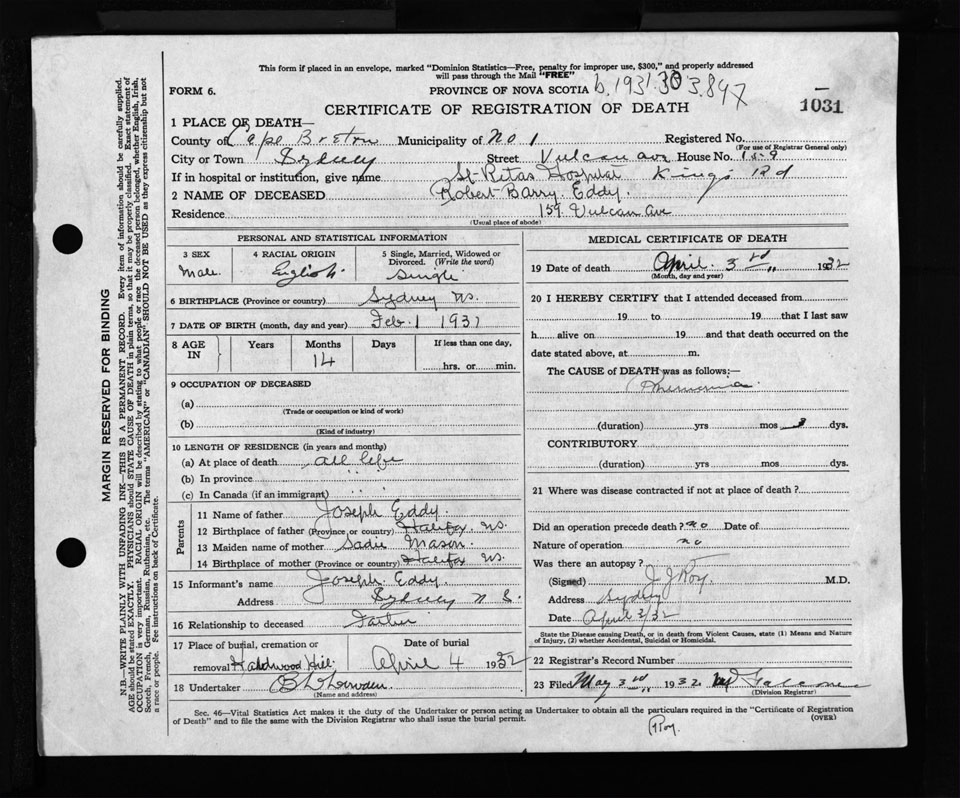 This form if placed in an envelope, marked "Dominion Statistics—Free, penalty for improper use, $300," and properly addressed
will pass through the Mail "FREE"
FORM 6.
PROVINCE OF NOVA SCOTIA
1031
CERTIFICATE OF REGISTRATION OF DEATH
1 PLACE OF DEATH—
County of Cape Breton Municipality of No 1 Registered No.
(For use of Registrar General only)
City or Town Sydney Street Vulcan Ave House No. 159
If in hospital or institution, give name St Ritas Hospital Kings Rd
2 NAME OF DECEASED Robert Barry Eddy.
Residence 159 Vulcan Ave
(Usual place of abode)
PERSONAL AND STATISTICAL INFORMATION
3 SEX
Male
4 RACIAL ORIGIN
English
5 Single, Married, Widowed or
Divorced. (Write the word)
Single
6 BIRTHPLACE (Province or country) Sydney NS.
7 DATE OF BIRTH (month, day and year) Feb. 1 1931
8 AGE IN
Years
Months
14
Days
If less than one day,
hrs. or min.
9 OCCUPATION OF DECEASED
(a)
(Trade or occupation or kind of work)
(b)
(Kind of industry)
10 LENGTH OF RESIDENCE (in years and months)
(a) At place of death all life
(b) In province " "
(c) In Canada (if an immigrant)
Parents
11 Name of father Joseph Eddy.
12 Birthplace of father (Province or country) Halifax NS.
13 Maiden name of mother Sadie Mason.
14 Birthplace of mother (Province or country) Halifax NS.
15 Informant's name Joseph Eddy.
Address Sydney N S.
16 Relationship to deceased Father
17 Place of burial, cremation or
removal Hardwood Hill
Date of burial
April 4 1932
18 Undertaker
(Name and address)
MEDICAL CERTIFICATE OF DEATH
19 Date of death April 3rd 1932
(Month, day and year)
20 I HEREBY CERTIFY that I attended deceased from
19 to 19 that I last saw
h alive on 19 and that death occurred on the
date stated above, at m.
The CAUSE of DEATH was as follows:—
Pneumonia
(duration) yrs mos 3 dys.
CONTRIBUTORY
(duration) yrs mos dys.
21 Where was disease contracted if not at place of death?
Did an operation precede death? no Date of
Nature of operation no
Was there an autopsy?
(Signed) J J Roy. M.D.
Address Sydney
Date April 3/32
State the Disease causing Death, or in death from Violent Causes, state (1) Means and Nature
of Injury, (2) whether Accidental, Suicidal or Homicidal.
22 Registrar's Record Number
23 Filed May 3rd 1932
(Division Registrar)
Sec. 46—Vital Statistics Act makes it the duty of the Undertaker or person acting as Undertaker to obtain all the particulars required in the "Certificate of Registration
of Death" and to file the same with the Division Registrar who shall issue the burial permit.
(OVER)
Roy.
MARGIN RESERVED FOR BINDING
N.B.—WRITE PLAINLY WITH UNFADING INK—THIS IS A PERMANENT RECORD. Every item of information should be carefully supplied.
AGE should be stated EXACTLY. PHYSICIANS should STATE CAUSE OF DEATH in plain terms, so that it may be properly classified. Exact statement of
OCCUPATION is very important. RACIAL ORIGIN will be described by stating to what people or race the deceased person belonged, whether English, Irish,
Scotch, French, German, Russian, Ruthenian, etc. The terms "AMERICAN" or "CANADIAN" SHOULD NOT BE USED as they express citizenship but not
a race or people. See instructions on back of Certificate.